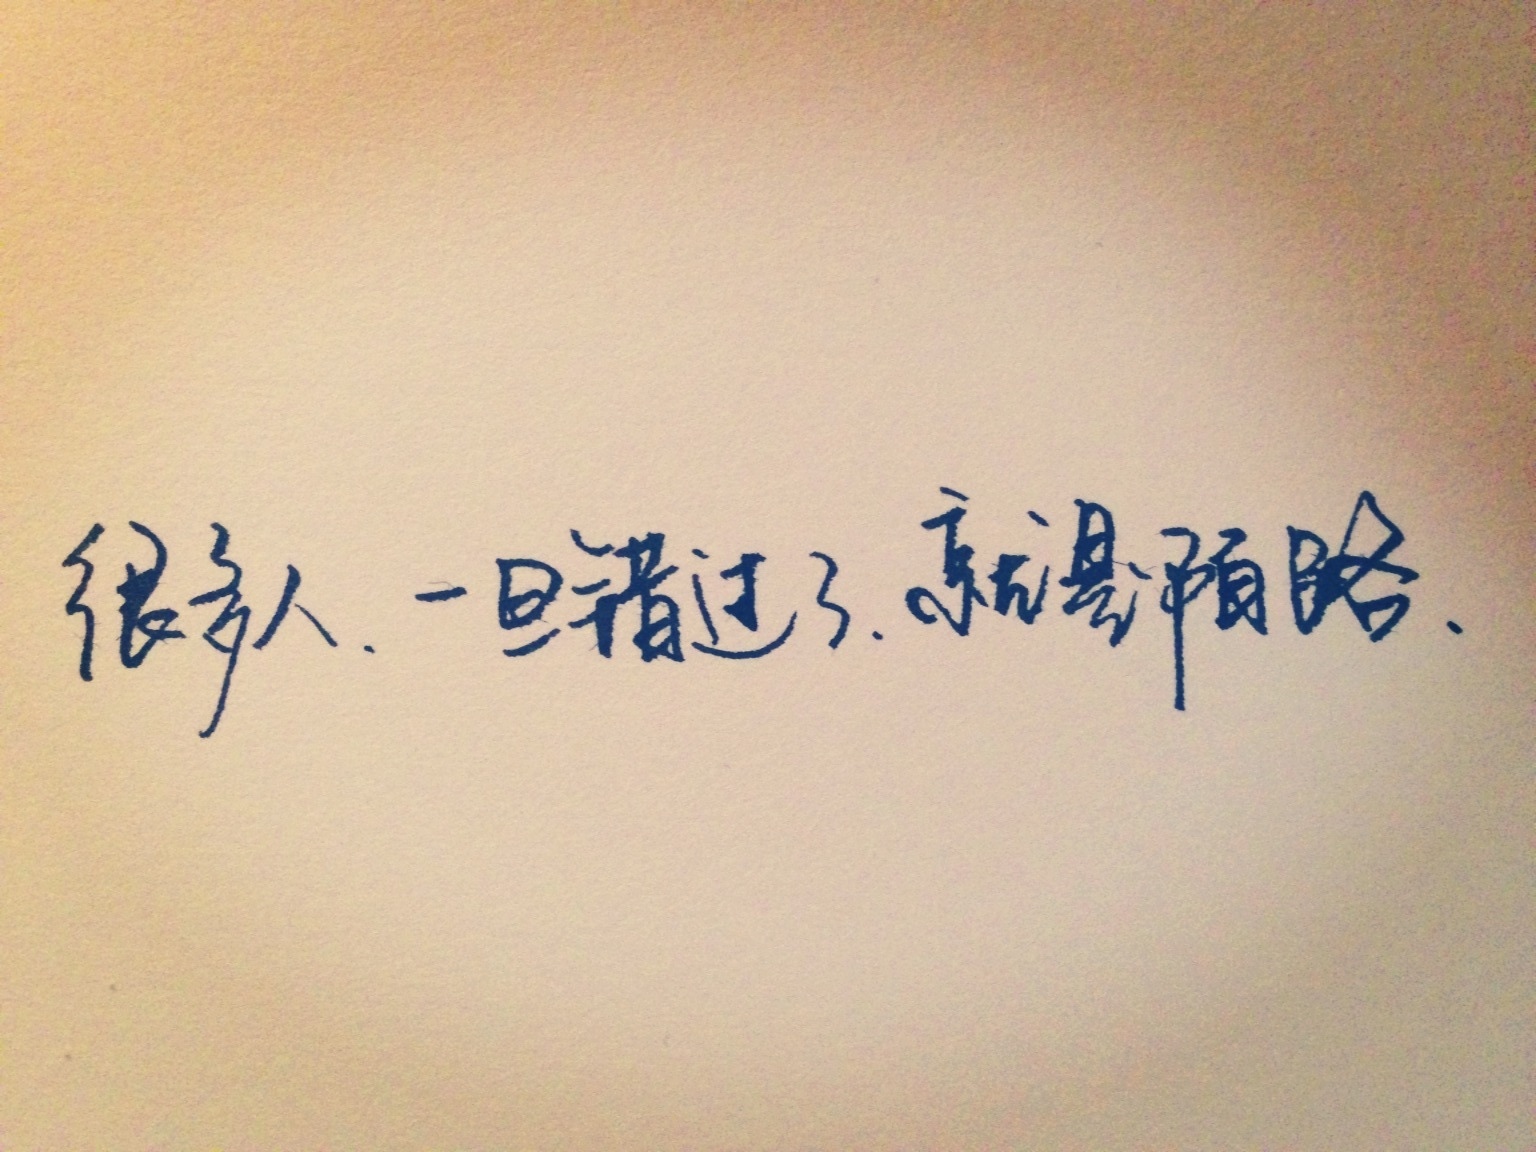 很多人.一旦错过了.就是陌路.